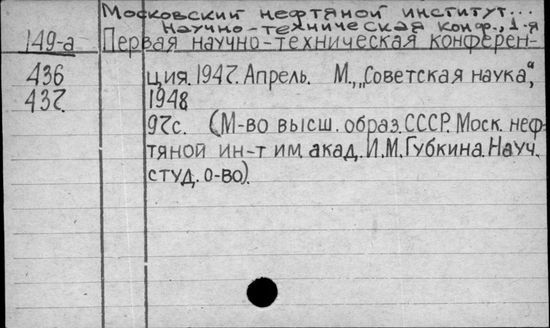 Московский нефтяной институт...
Научно-техническая конф., 1-я
149-а Первая научно-техническая конферен-
436 ция. 1947. Апрель. М., „Советская наука",
437. 1948
97с. (М-во высш. образ. СССР. Моск. неф-
тяной ин-т им. акад. И.М. Губкина. Науч.
студ. о-во).